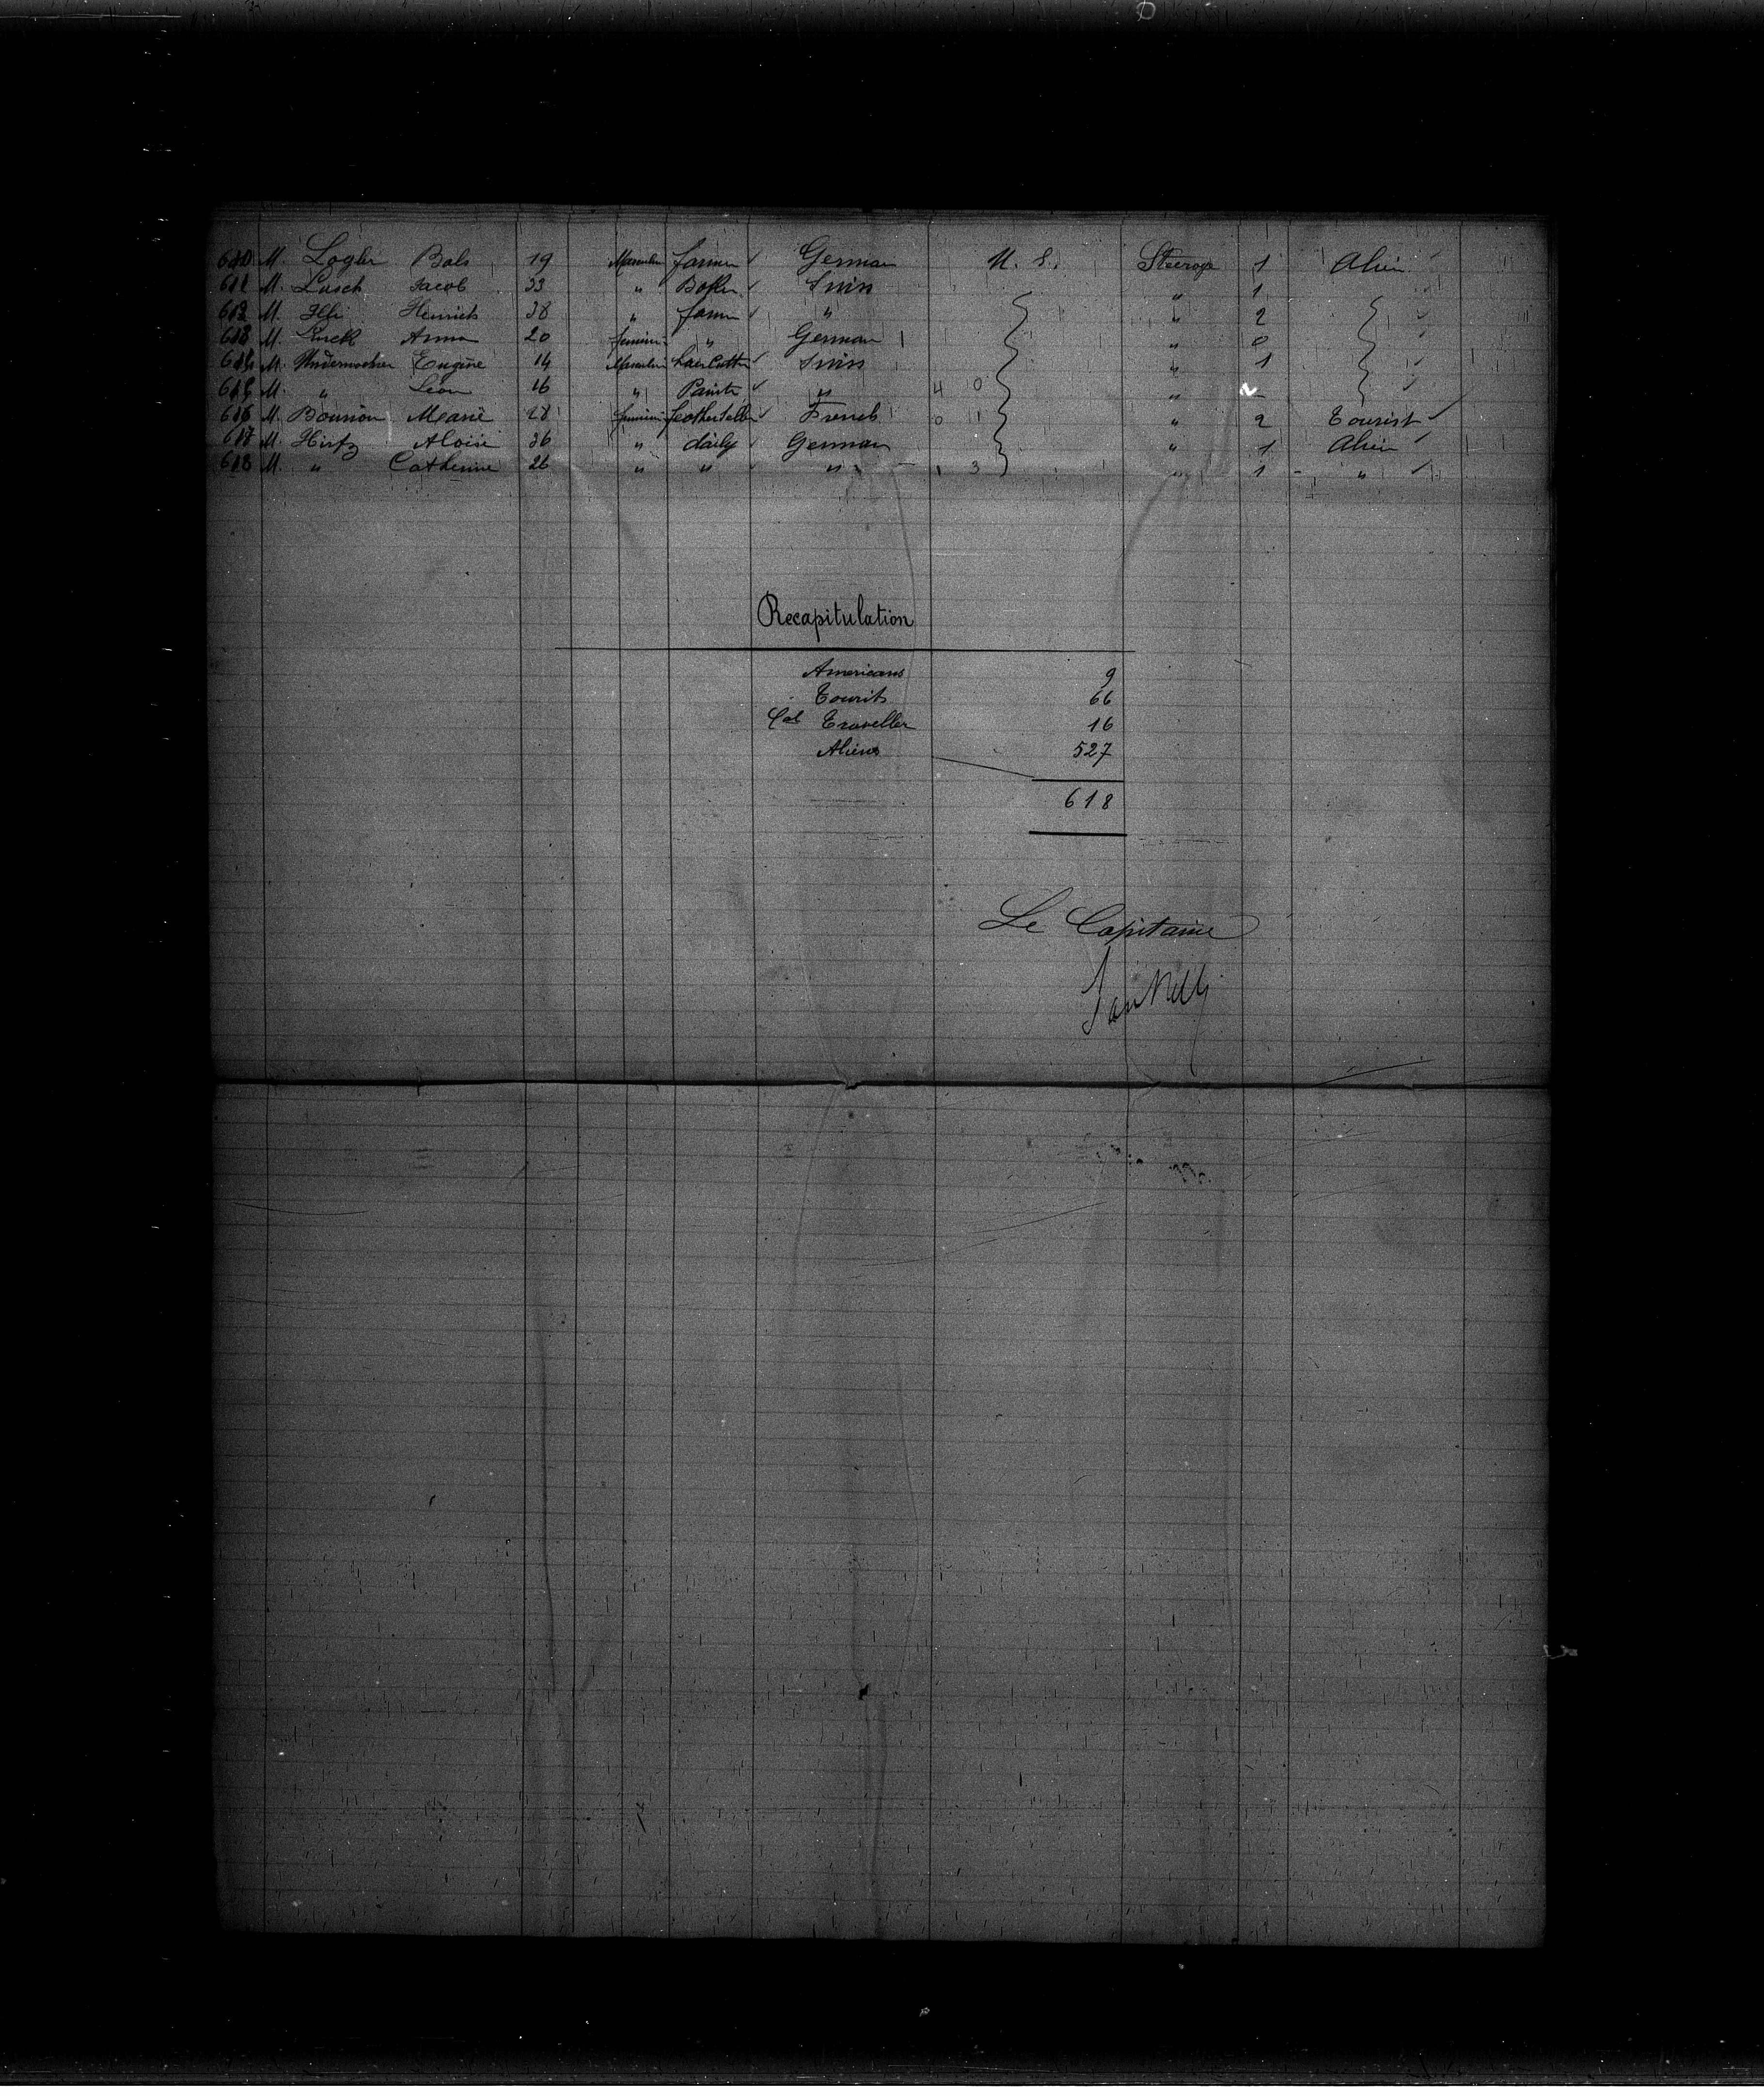 610 M. Logler Bals 19 Masculin farmer German U. S. Steerage 1 Alien
611 M. Lusch Jacob 33 " Swiss " 1
612 M. Illi Henrich 38 " farmer " " 2
613 M. Anna 20 feminin " German " 0
614 M. Eugène 14 Masculin haircutter Swiss " 1
615 M. " Léon 16 " Painter " 4 0 " -
616 M. Bournon 28 feminin French 0 1 " 2 Tourist
617 M. Hirtz Aloisi 36 " daily German " 1 Alien
618 M. " Catherine 26 " " " 1 3 " 1 "
Recapitulation
Americans 9
Tourits 66
Cal Traveller 16
Aliens 527
618
Le Capitaine